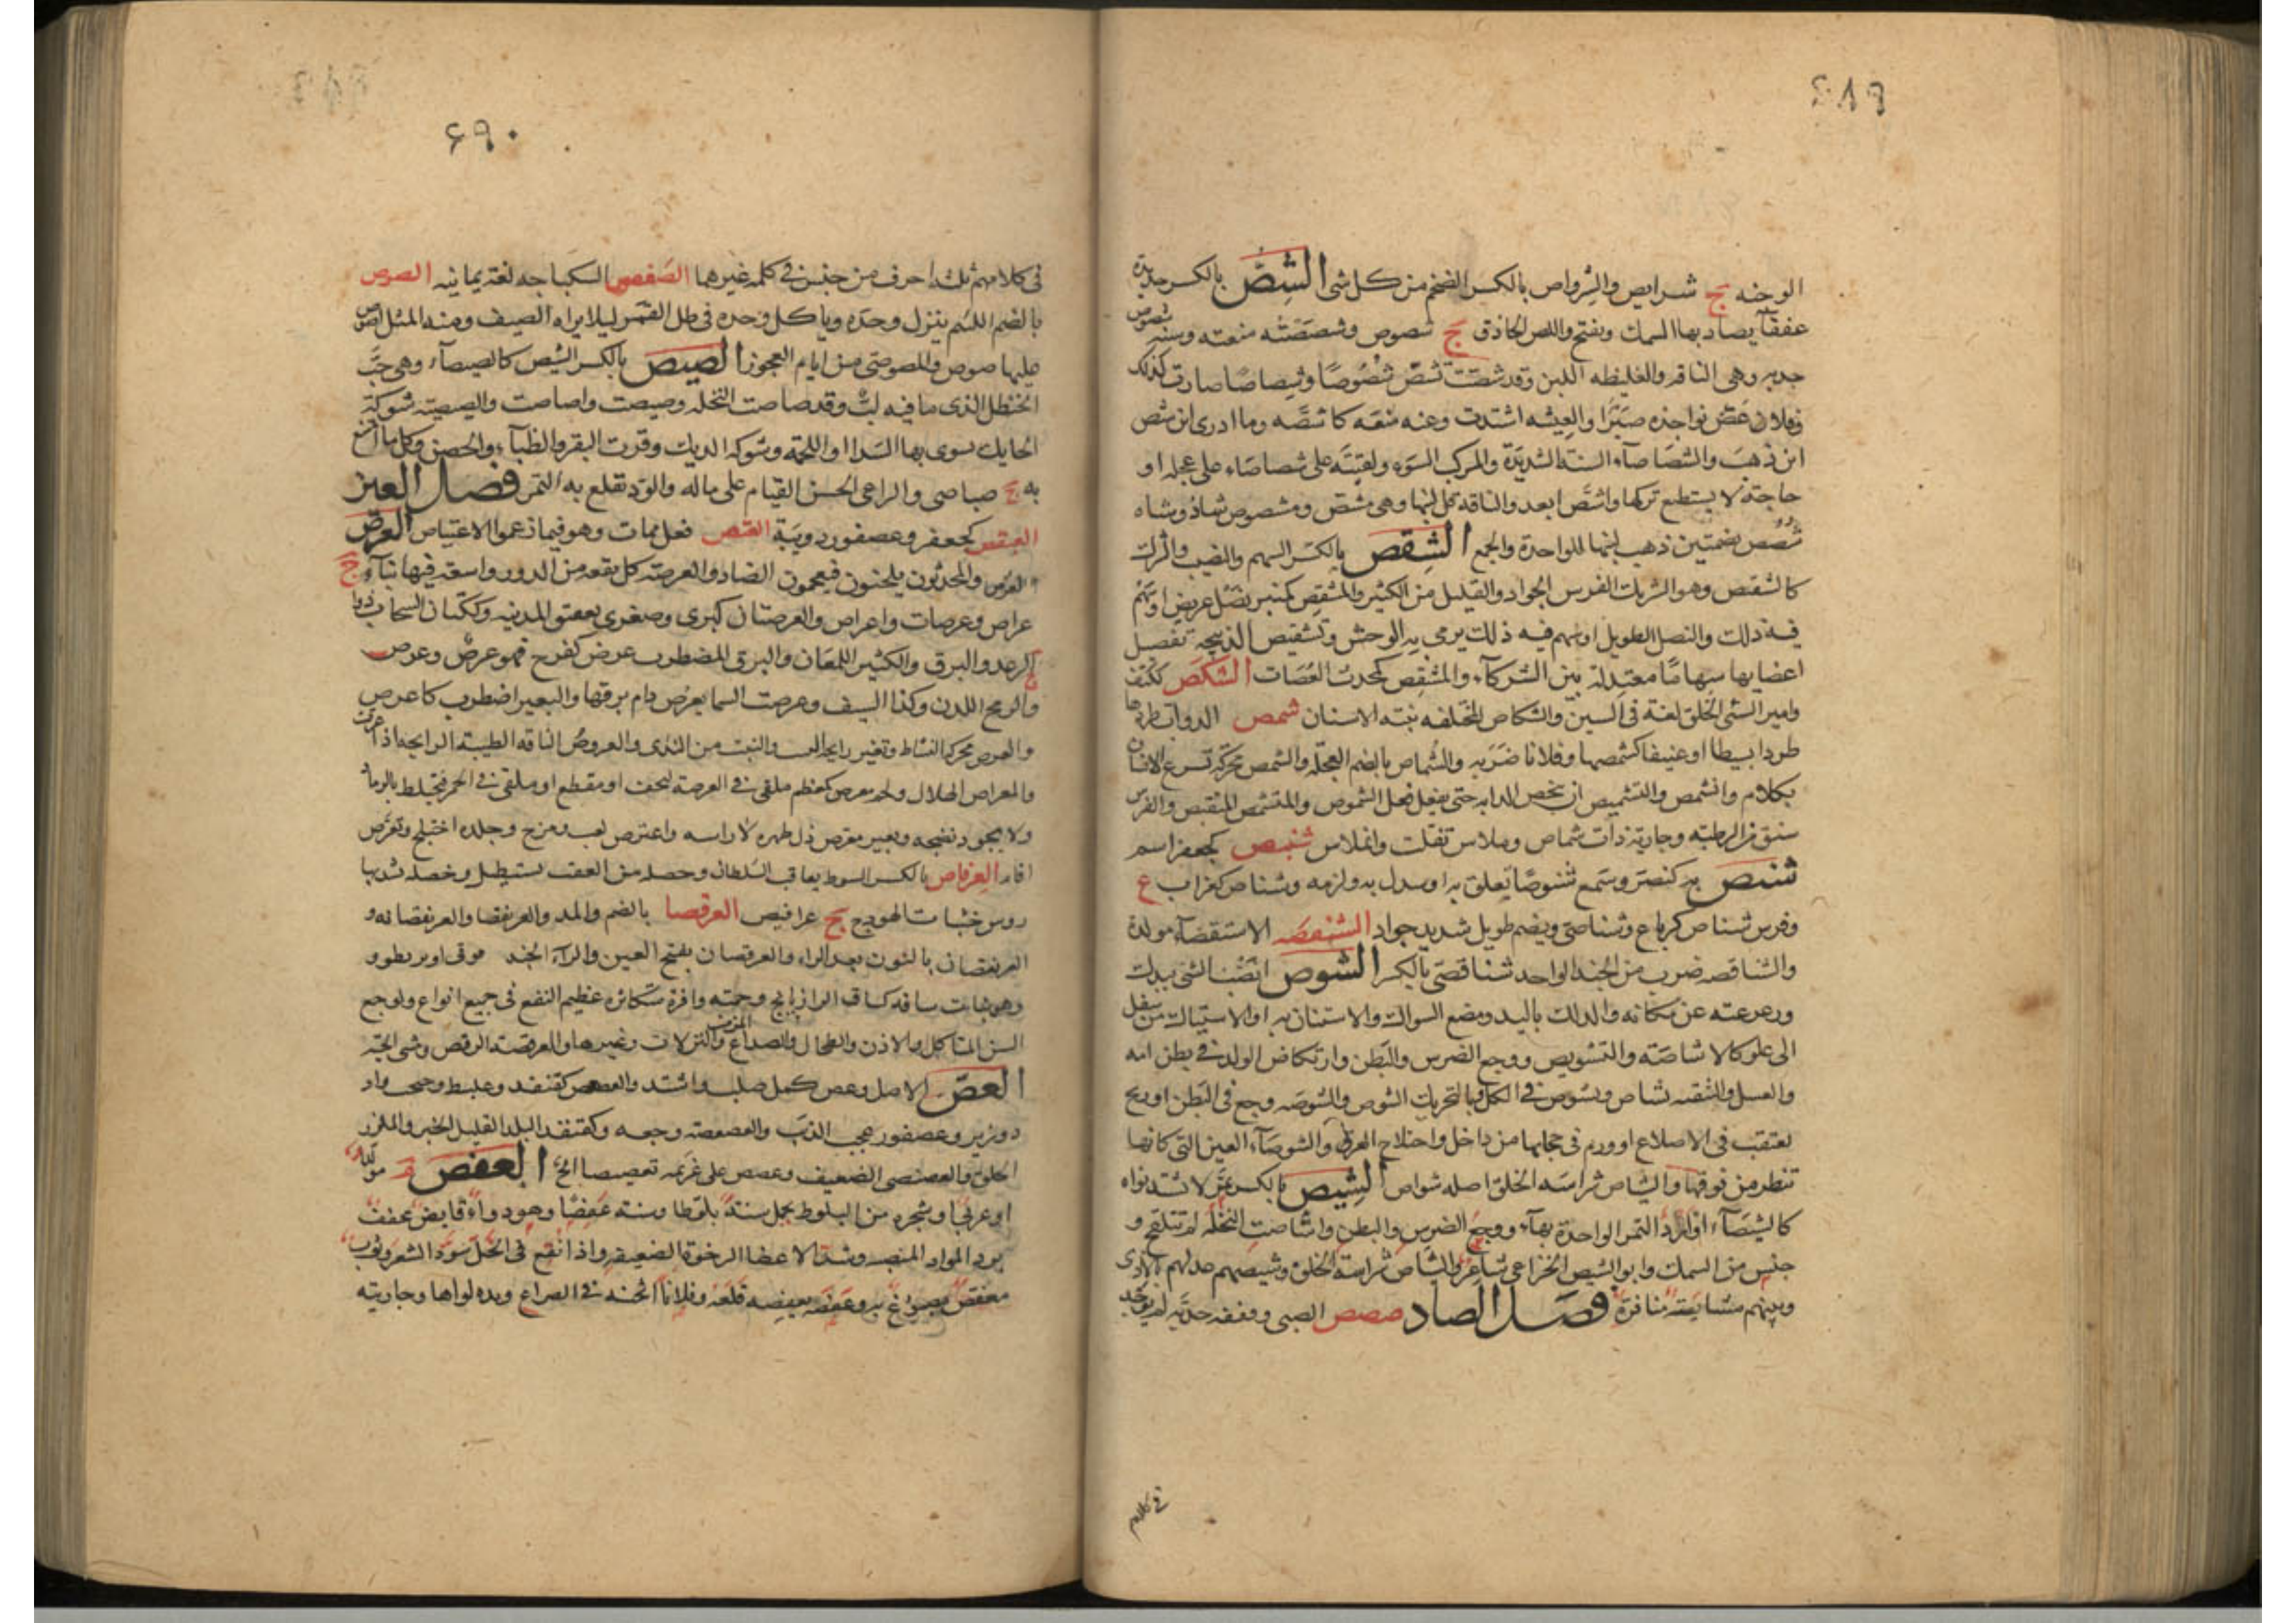 ۶۸۹
الوجنه ج شرايص والشرواص بالكسر الضخم من كل شى الشص بالكسر حديدة
عقفا يصاد بها السمك ويفتح واللص الحاذق ج شصوص وشصصته منعته وسنه شصوص
جدبه وهى الناقه الغليظه اللبن وقد شصت تشص شصوصا وشصاصا صارت كذلك
وفلان عض نواجذه صبرا والعيشه اشتدت وعنه منعه كاشصه وما ادرى اين شص
اين ذهب والشصاصآء السنة الشديدة والمركب السوء ولقيته على شصاصاء على عجله او
حاجة لا يستطع تركها واشص ابعد والناقه قل لبنها وهى مشص وشصوص شاذ وشاه
شصص بضمتين ذهب لبنها للواحدة والجمع الشقص بالكسر السهم والنصيب والشرك
كالشقيص وهو الشريك الفرس الجواد والقليل من الكثير والمشقص كمنبر نصل عريض او سهم
فيه ذلك والنصل الطويل او سهم فيه ذلك يرمى به الوحش وتشقيص الذبيحة تفصيل
اعضايها سهاما معتدلة بين الشركآء والمشقص كمحدث القصاب الشكص ككتف
وامير السئى الخلق لغة فى السين والشكاص المختلفه نبتة الاسنان شمص الدواب طردها
طردا بسيطا او عنيفا كشمصها وفلانا ضربه والشماص بالضم العجلة والشمص محركة تسرع الانسان
بكلام وانشمص والتشميص ان تنخس الدابه حتى يفعل فعل الشموص والمتشمص المنقبض والفرس
سنق من الرطبه وجارية ذات شماص وملاس تفلت وانملاس شنبص كجعفر اسم
شنص به كنصر وسمع شنوصا تعلق به او سدك به ولزمه وشناص كغراب ع
وفرس شناص كرباع وشناصى ويضم طويل شديد جواد الشنقصه الاستقصآء مولدة
والشناقصه ضرب من الجند الواحد شناقصى بالكسر الشوص نصب الشئ بيدك
وزعزعته عن مكانه والدلك باليد ومضغ السواك والاستنان به او الاستياك من سفل
الى علو كالاشاصة والتشويص ووجع الضرس والبطن وارتكاض الولد فى بطن امه
والغسل والتنقيه يشاص ويشوص فى الكل وبالتحريك الشوص والشوصه وجع فى البطن او ريح
تعتقب فى الاضلاع او ورم فى حجابها من داخل واختلاج العرق والشوصآء العين التى كانها
تنظر من فوقها والشياص شراسه الخلق اصله شواص الشيص بالكسر تمر لا يشتد نواه
كالشيصآء او اردا التمر الواحدة بهآء ووجع الضرس والبطن واشاصت النخلة لم تتلقح و
جنس من السمك وابو الشيص الخزاعى شاعر والشياص شراسة الخلق وشيصهم عذبهم بالاذى
وبينهم مشايصة منافرة فصل الصاد صصص الصبى وققفه حدثه لم يوجد
فى كلام
۶۹۰
فى كلامهم ثلثة احرف من جنس فى كلمه غيرهما الصفعص السكباجه لغة يمانيه الصوص
بالضم اللئيم ينزل وحده وياكل وحده فى ظل القمر ليلا يراه الضيف ومنه المثل اصوص
عليها صوص والصوصى من ايام العجوز الصيص بالكسر الشيص كالصيصآء وهى حب
الحنظل الذى ما فيه لب وقد صاصت النخله وصيصت واصاصت والصيصية شوكة
الحايك يسوى بها السدا واللحمة وشوكة الديك وقرن البقر والظبآء والحصن وكل ما امتنع
به ج صياصى والراعى الحسن القيام على ماله والود تقلع به التمر فصل العين
العبقص كجعفر وعصفور دويبة العتص فعل ممات وهو فيما زعموا الاعتياص العرص
العرص والمحدثون يلحنون فيعجمون الضاد والعرصة كل بقعة من الدور واسعة فيها بنآء ج
عراص وعرصات واعراص والعرصتان كبرى وصغرى بعقيق المدينه وككتان السحاب ذو
الرعد والبرق والكثير اللمعان والبرق المضطرب عرص كفرح فهو عرص وعراص
والرمح اللدن وكذا السيف وعرصت السما تعرص دام برقها والبعير اضطرب كاعرص
والعرص محركة النشاط وتغير رايحة البيت والنبت من الندى والعروص الناقه الطيبة الرايحه اذا عرقت
والمعراص الهلال ولحم معرص كمعظم ملقى فى العرصة ليجف او مقطع او ملقى فى الجمر فيختلط بالرماد
ولا يجود نضجه وبعير معرص ذل ظهره لا راسه واعترص لعب ومرح وجلده اختلج وتعرص
اقام العرفاص بالكسر السوط يعاقب به السلطان وخصلة من العقب تستطيل وخصلة تشد بها
رءوس خشبات الهودج ج عرافيص العرقصا بالضم والمد والعريقصا والعريقصانه و
العرنقصان بالنون بعد الراء والعرقصان بفتح العين والرآء الجند قوقى او بربطوره
وهو نبات ساقه كساق الرازيانج وجمته وافرة متكاثرة عظيم النفع فى جميع انواع الوجع
السن المتاكل والاذن والطحال والصداع المزمن والنزلات وغيرها والعرقصة الرقص ومشى الحية
العص الاصل وعص كمل صلب واشتد والعصعص كقنفد وعلبط وحبحب وادد
وزبير وعصفور عجب الذنب والعصعصة وجعه وكقنفد البلد القليل الخير والملزز
الخلق والعصنصى الضعيف وعصص على غريمه تعصيصا الح العفص م مولد
او عربى او شجره من البلوط تحمل سنة بلوطا وسنة عفصا وهو دوآء قابض مجفف
يرد المواد المنصبه ويشد الاعضا الرخوة الضعيفه واذا نقع فى الخل سود الشعر وثوب
معفص مصبوغ به وعفصه يعفصه قلعه وفلانا اثخنه فى الصراع ويده لواها وجاريته